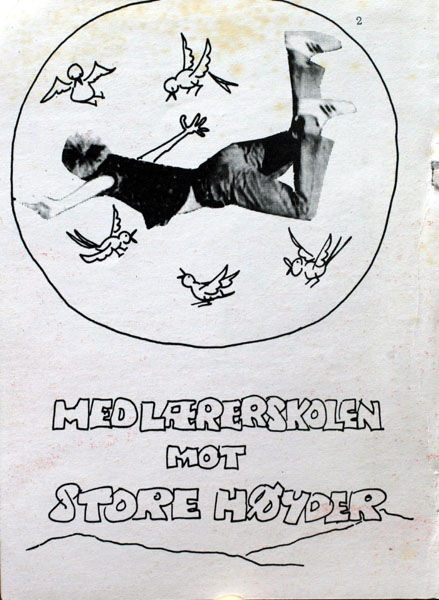 2
MED LÆRERSKOLEN
MOT
STORE HØYDER